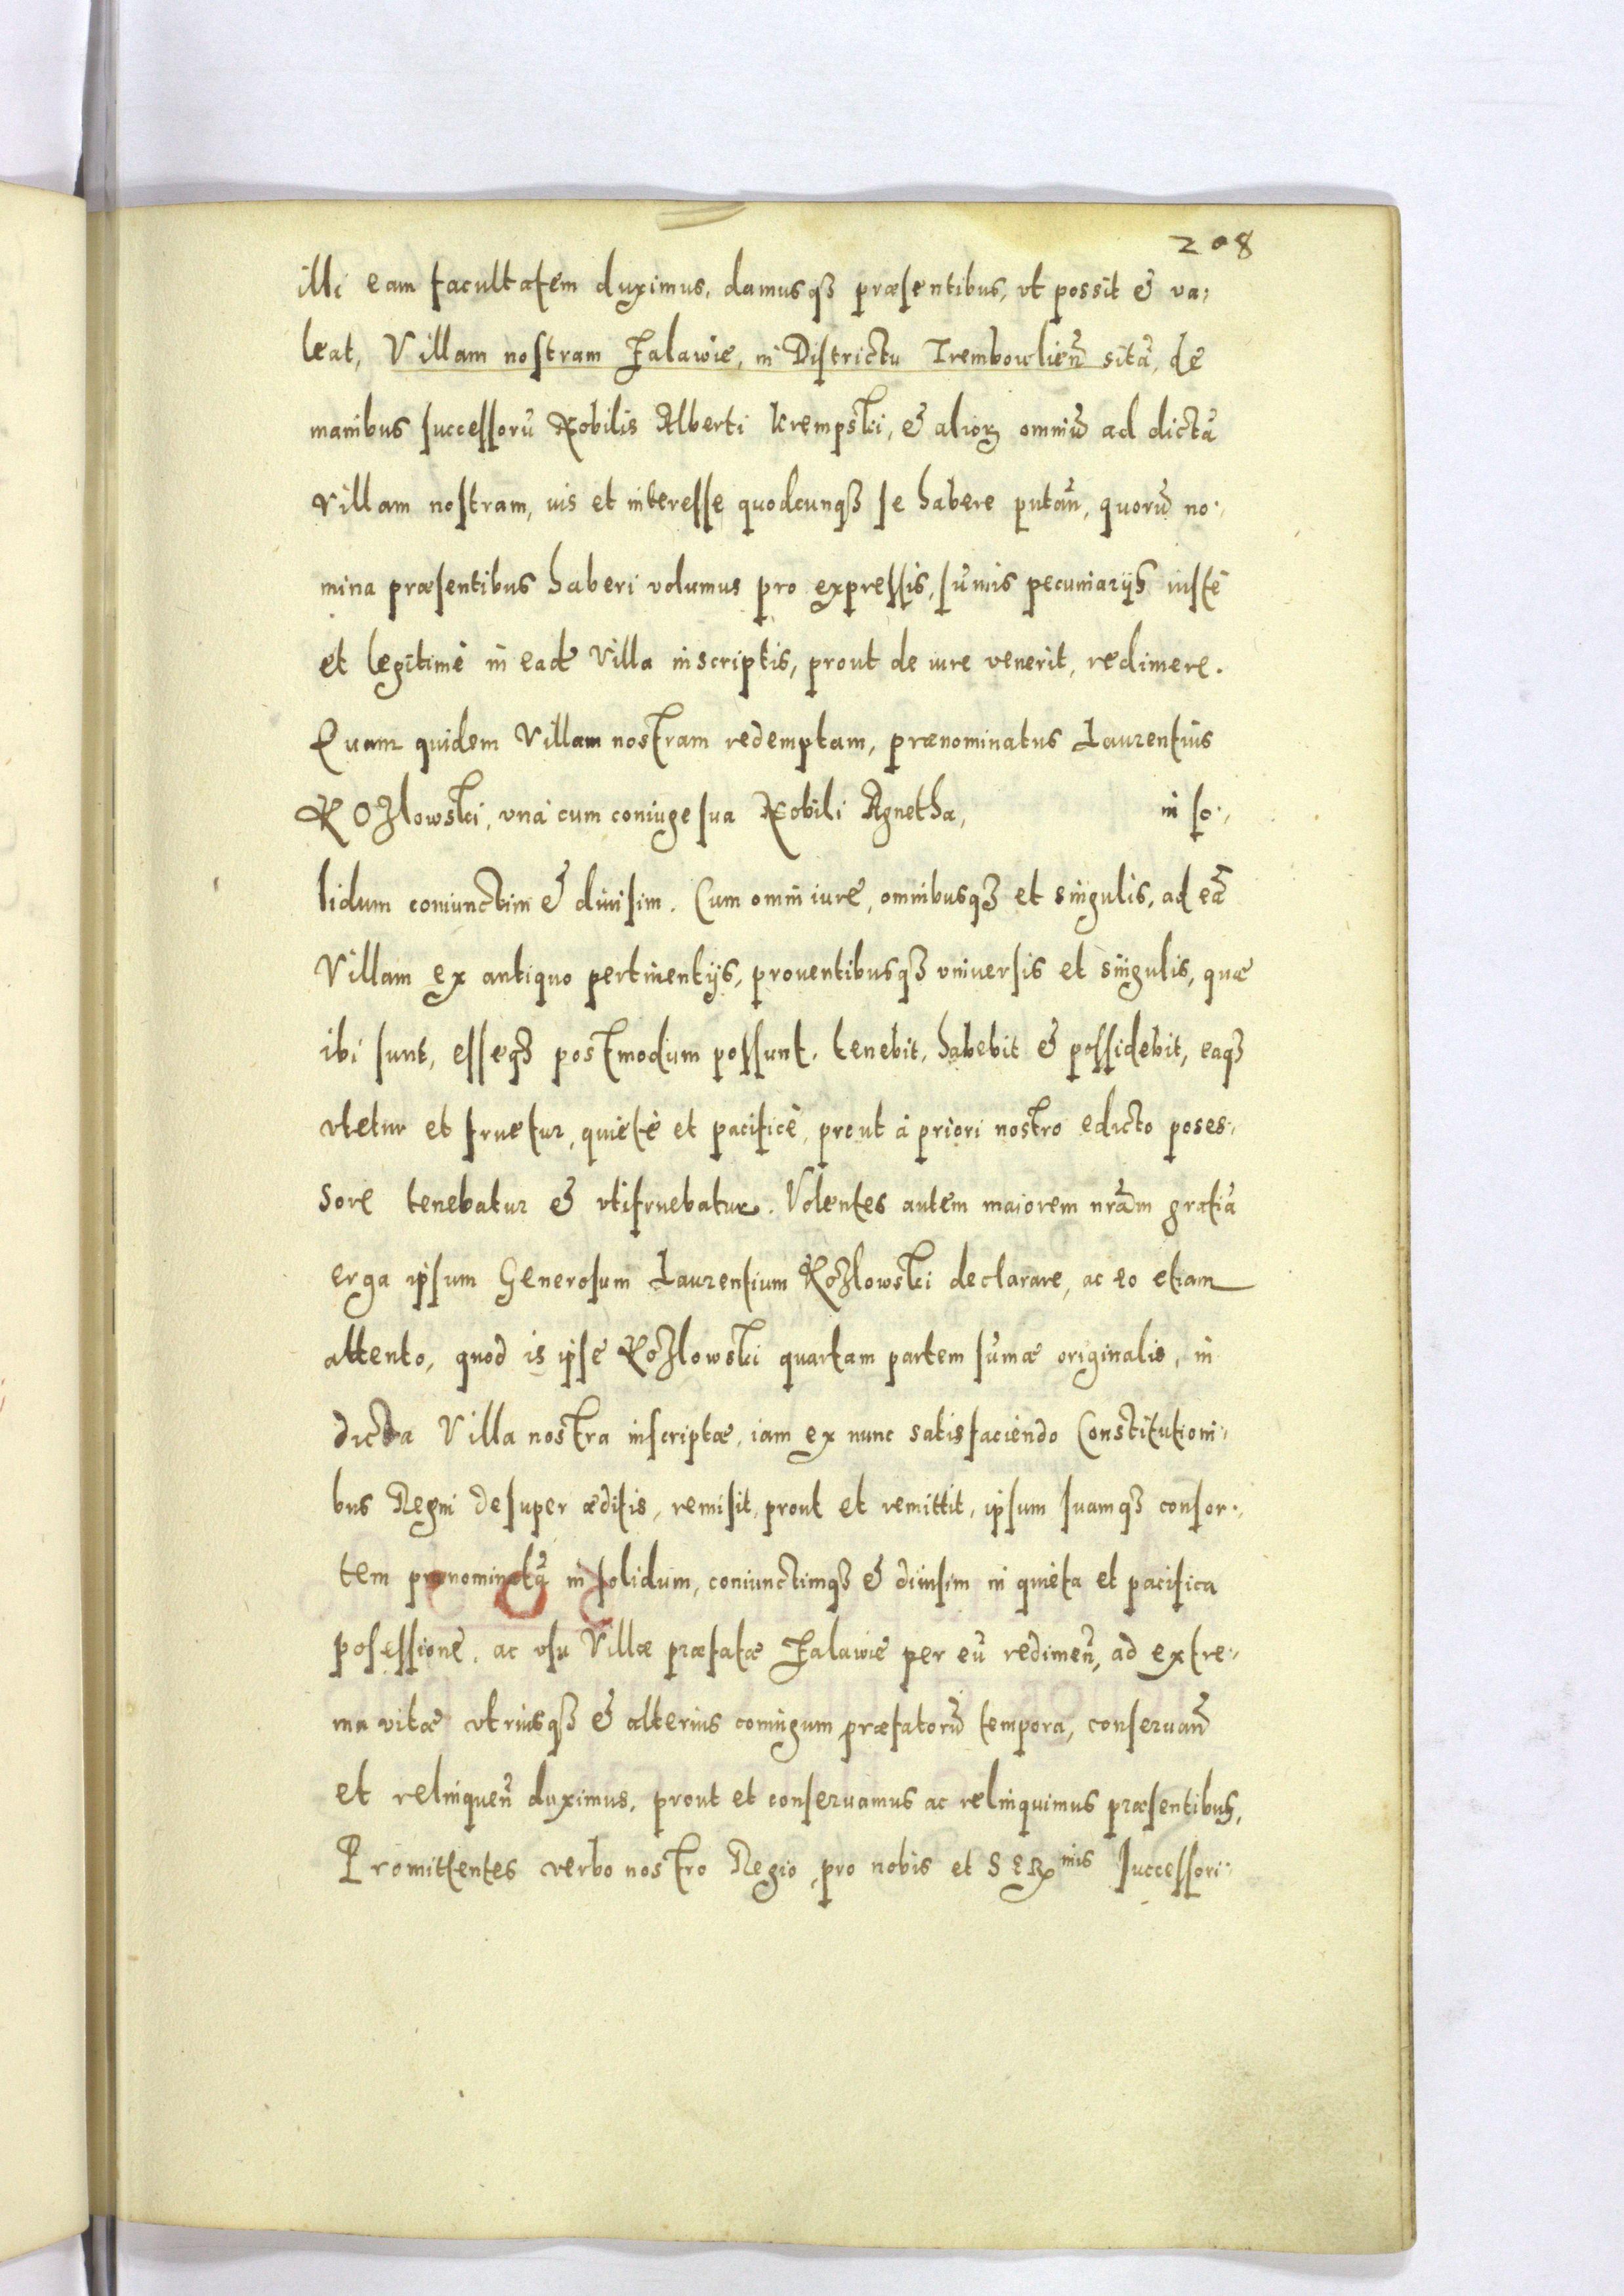 208
illi eam facultatem duximus, damusqȝ præsentibus, vt possit & va,
leat, Villam nostram Zalawie, in Districtu Trembowlien̄ sitā, de
manibus successorū Nobilis Alberti Krempski, & alioꝝ omniū ad dictā
villam nostram, ius et interesse quodcunqȝ se habere putan̄, quorū no,
mina præsentibus haberi volumus pro expressis, sūmis pecuniarijs iustè
et legitimè in eadē Villa inscriptis, prout de iure venerit, redimere.
Quam quidem Villam nostram redemptam, prænominatus Laurentius
Kozlowski, vnà cum coniuge sua Nobili Agnetha, in so,
lidum coniunctim & diuisim. Cum omni iure, omnibusqȝ et singulis, ad eā
Villam ex antiquo pertinentijs, prouentibusqȝ vniuersis et singulis, quæ
ibi sunt, esseqȝ postmodum possunt. tenebit, habebit & possidebit, eaqȝ
vtetur et fruetur, quietè et pacificè, prout à priori nostro edicto poses,
sore tenebatur & vtifruebatur. Volentes autem maiorem nr̄am gratiā
erga ipsum Generosum Laurentium Kozlowski declarare, ac eo etiam
attento, quod is ipse Kozlowski quartam partem sūmæ originalis, in
dicta Villa nostra inscriptæ, iam ex nunc satisfaciendo Constitutioni,
bus Regni desuper æditis, remisit, prout et remittit, ipsum suamqȝ consor,
tem prænominatā in solidum, coniunctimqȝ & diuisim in quieta et pacifica
posessione, ac vsu Villæ præfatæ Zalawie per eū redimen̄, ad extre,
ma vitæ vtriusqȝ & alterius coniugum præfatorū tempora, conseruan̄
et relinquen̄ duximus, prout et conseruamus ac relinquimus præsentibus,
Promittentes verbo nostro Regio, pro nobis et SERmis Successori,